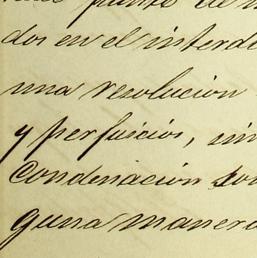 punto de
dos en el interd
una resolucion
y perjuicios, sin
Condenacion
guna manera